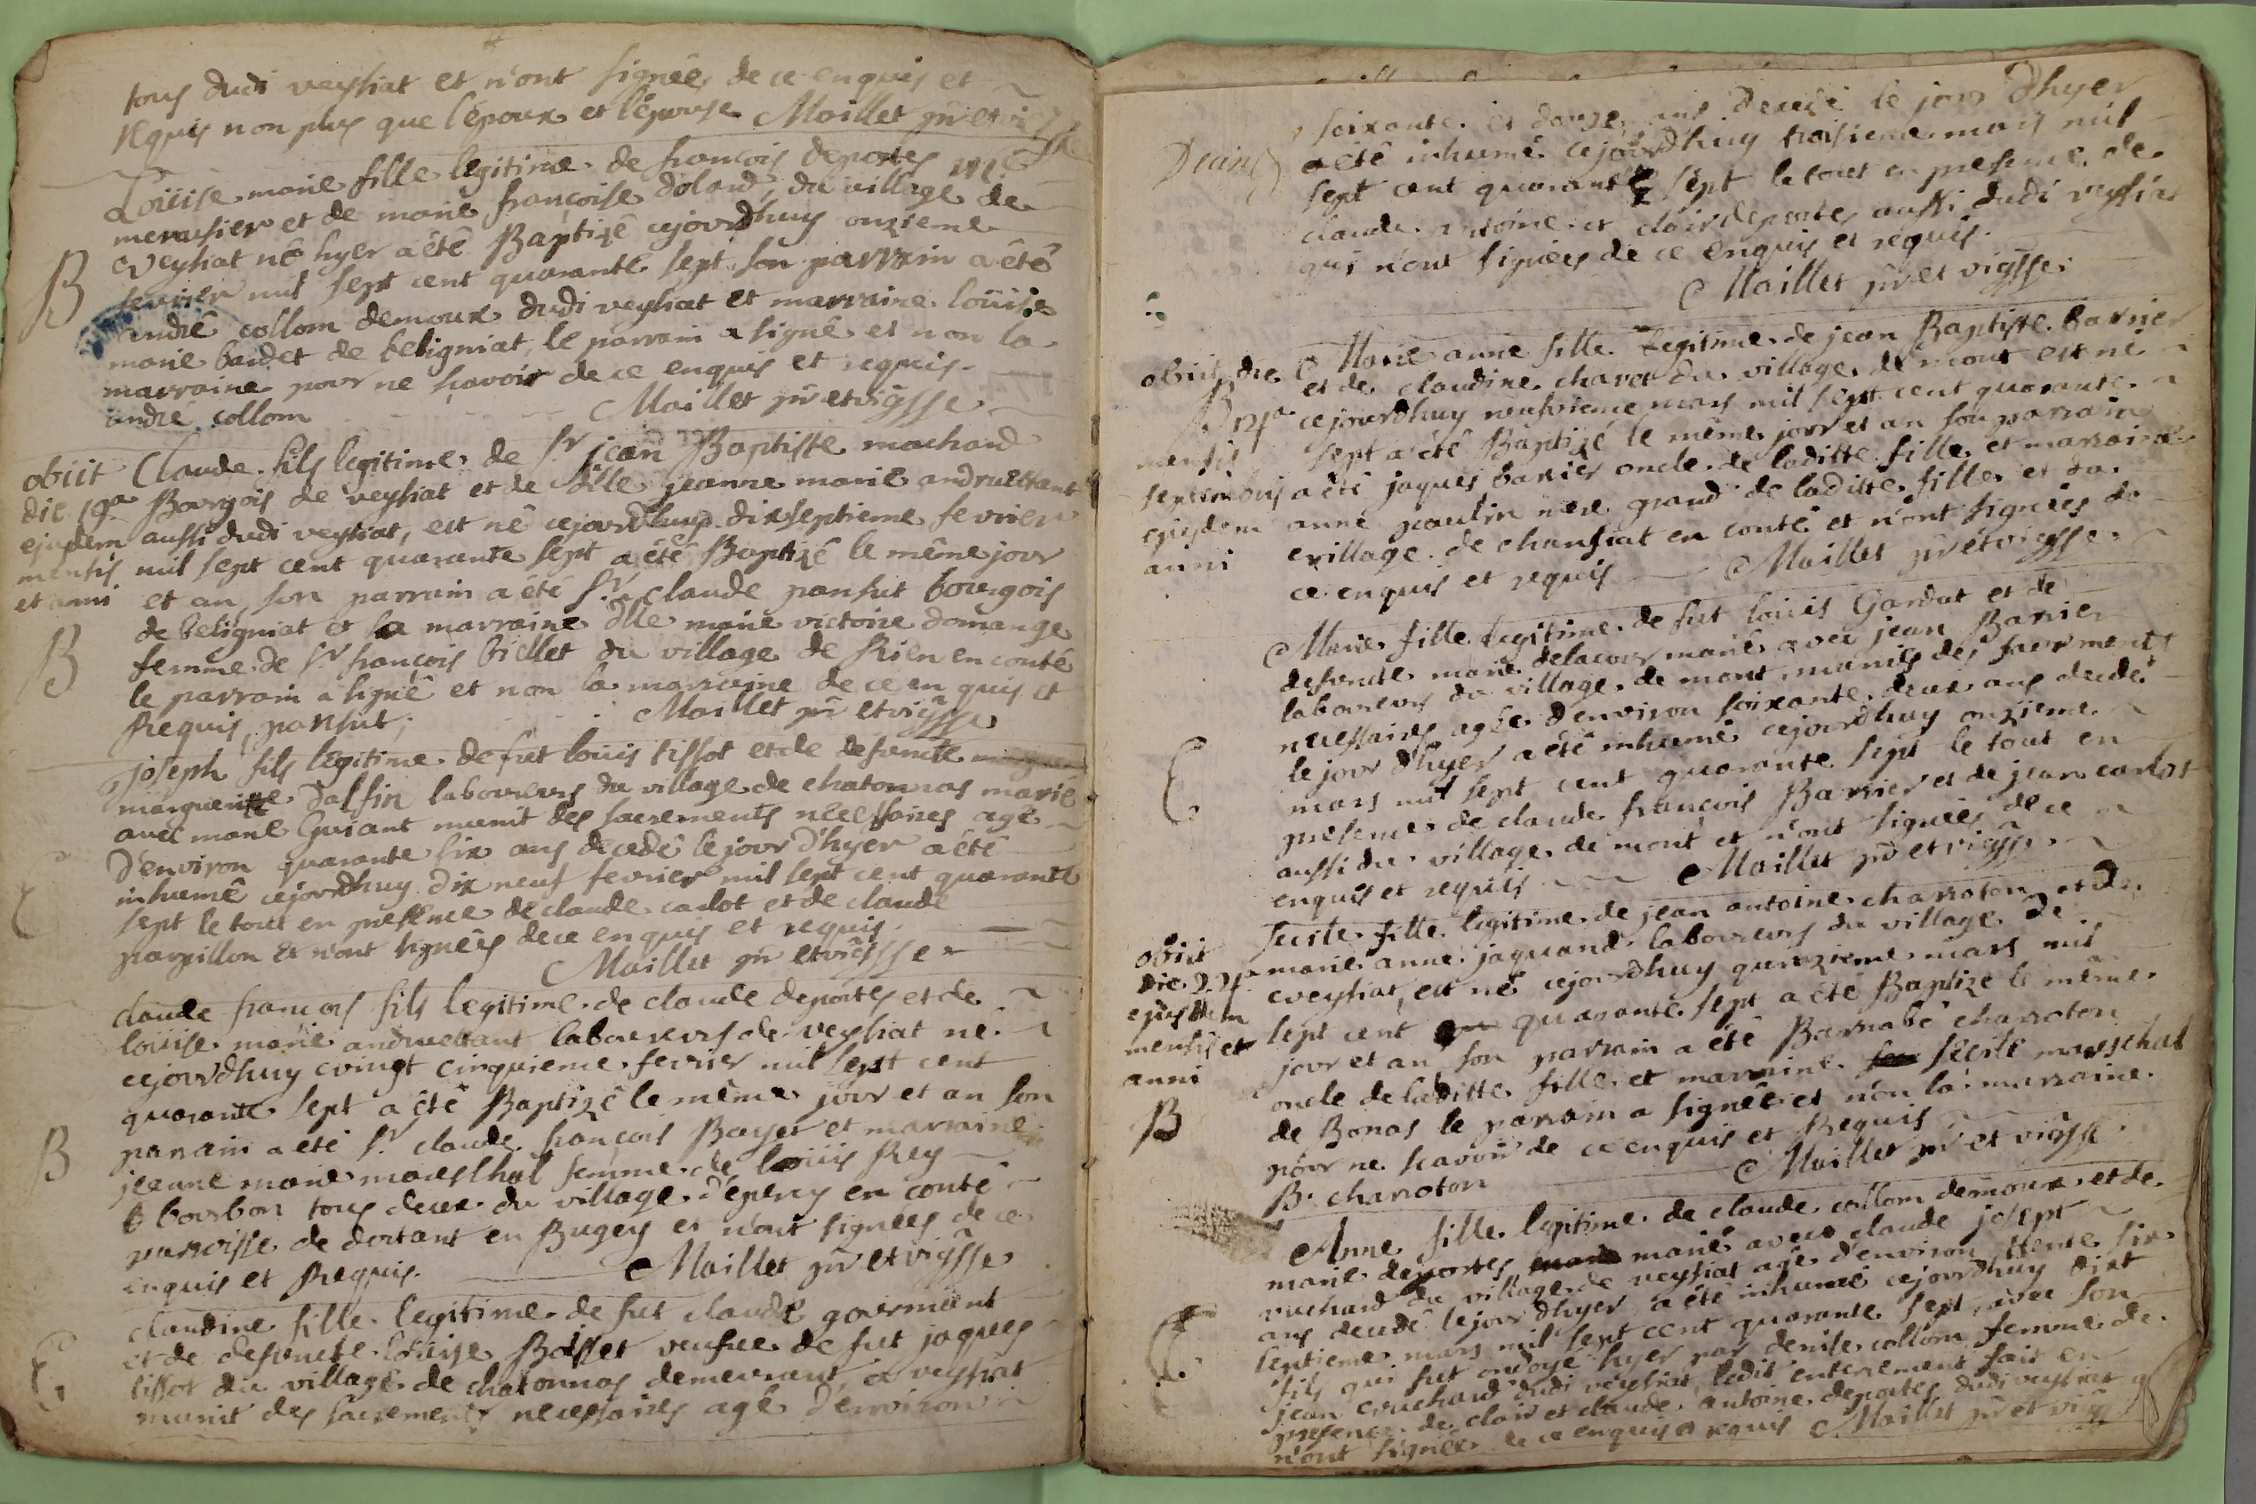 tous dudi veyssiat et n'ont signées de ce enquis et
requis non plus que l'époux et l'épouse Maillet
Loüise marie fille legitime de françois deportes
menusier et de marie françoise dolard, du village de
veysiat né hyer a été Baptizé cejourdhuy onzieme
fevrier mil sept cent quarante sept son parrain a été
andré collom demoux dudi veysiat et marraine loüise
marie baudet de beligniat, le parrain a signé et non la
marraine pour ne sçavoir de ce enquis et requis.
andré collom Maillet prr et vigsse
B
Claude fils legitime de Sr jean Baptiste machard
Borgois de veysiat et de dlle jeanne marie andruettant
aussi dudi veysiat, est né cejourdhuy dixseptieme fevrier
mil sept cent quarante sept a été Baptizé le même jour
et an son parrain a été Sr claude pansut bourgois
de beligniat et sa marraine dlle marie victoire domange
femme de Sr françois billet du village de Rien en conté
le parrain a signé et non la marraine de ce enquis et
Requis, pansut; Maillet prr et vigsse
obiit
die 19a
ejusdem
mensis
et anni
B
joseph fils legitime de fut loüis tissot et de defuncte
marguerite dalfin laboureurs du village de chatonnas marié
avec marie Guiant munit des sacrements necessaires agé
d'environ quarante six ans decedé le jour d'hyer a été
inhumé cejourdhuy dix neuf fevrier mil sept cent quarante
sept le tout en presence de claude carlot et de claude
parpillon et n'ont signées de ce enquis et requis.
Maillet prr et vigsse
claude françois fils legitime de claude deportes et de
loüise marie andruettant laboureurs de veysiat né
cejourdhuy vingt cinquieme fevrier mil sept cent
quarante sept a été Baptizé le même jour et an son
parrain a été Sr claude françois Bayer et marraine
jeanne marie mareschal femme de loüis Rey
bourbon tous deux du village d'épercy en conté
parroisse de dortant en Bugey et n'ont signées de ce
enquis et Requis. Maillet prr et vigsse
B
claudine fille legitime de fut claude gourmand
et de defuncte loüise Baisset veufve de fut jaques
tissot du village de chatonnas demeurant a veysiat
munit des sacrements necessaires agé d'environ
soixante et douze ans decedé le jour d'hyer
a été inhumé cejourdhuy troisieme mars mil
sept cent quarante sept le tout en presence de
claude antoine et clair deportes aussi dudi veysiat
qui n'ont signées de ce enquis et requis.
Maillet prr et vigsse
Marie anne fille legitime de jean Baptiste barrier
et de claudine charet du village de mont est né
cejourdhuy neufvieme mars mil sept cent quarante
sept a été Baptizé le même jour et an son parrain
a été jaques barrier oncle de laditte fille et marraine
anne paulin mere grand de laditte fille et du
village de chansiat en conté et n'ont signées de
ce enquis et requis Maillet prr et vigsse
obiit die
mensis
septembris
ejusdem
anni
Marie fille legitime de fut loüis Gardat et de
defuncte marie delacour marié avec jean Barrier
laboureurs du village de mont, munis des sacrements
necessaires agée d'environ soixante deux ans decedé
le jour d'hyer a été inhumé cejourdhuy onzieme
mars mil sept cent quarante sept le tout en
presence de claude françois Barrier et de jean carlot
aussi du village de mont et n'ont signées de ce
enquis et requis Maillet prr et vigsse
fille legitime de jean antoine charroton et de
marie anne jaquand laboureurs du village de
veysiat, est né cejourdhuy quinzieme mars mil
sept cent quarante sept a été Baptizé le même
jour et an son parrain a été Barnabé charroton
oncle de laditte fille et marraine mareschal
de Bonas le parrain a signée et non la marraine
pour ne sçavoir de ce enquis et Requis
B. charroton Maillet prr et vigsse
obiit
die
ejusdem
mensis et
anni
B
Anne fille legitime de claude collom demoux et de
marie deportes marié avec claude josept
vuchard du village de veysiat agé d'environ trente six
ans decedé le jour d'hyer a été inhumé cejourdhuy dixt
septieme mars mil sept cent quarante sept avec son
fils qui fut ondoyé hyer par denise collom femme de
jean vuchard dudi veysiat, ledit enterement fait en
presence de clair et claude antoine deportes dudi veysiat
n'ont signées de ce enquis et requis Maillet prr et vig